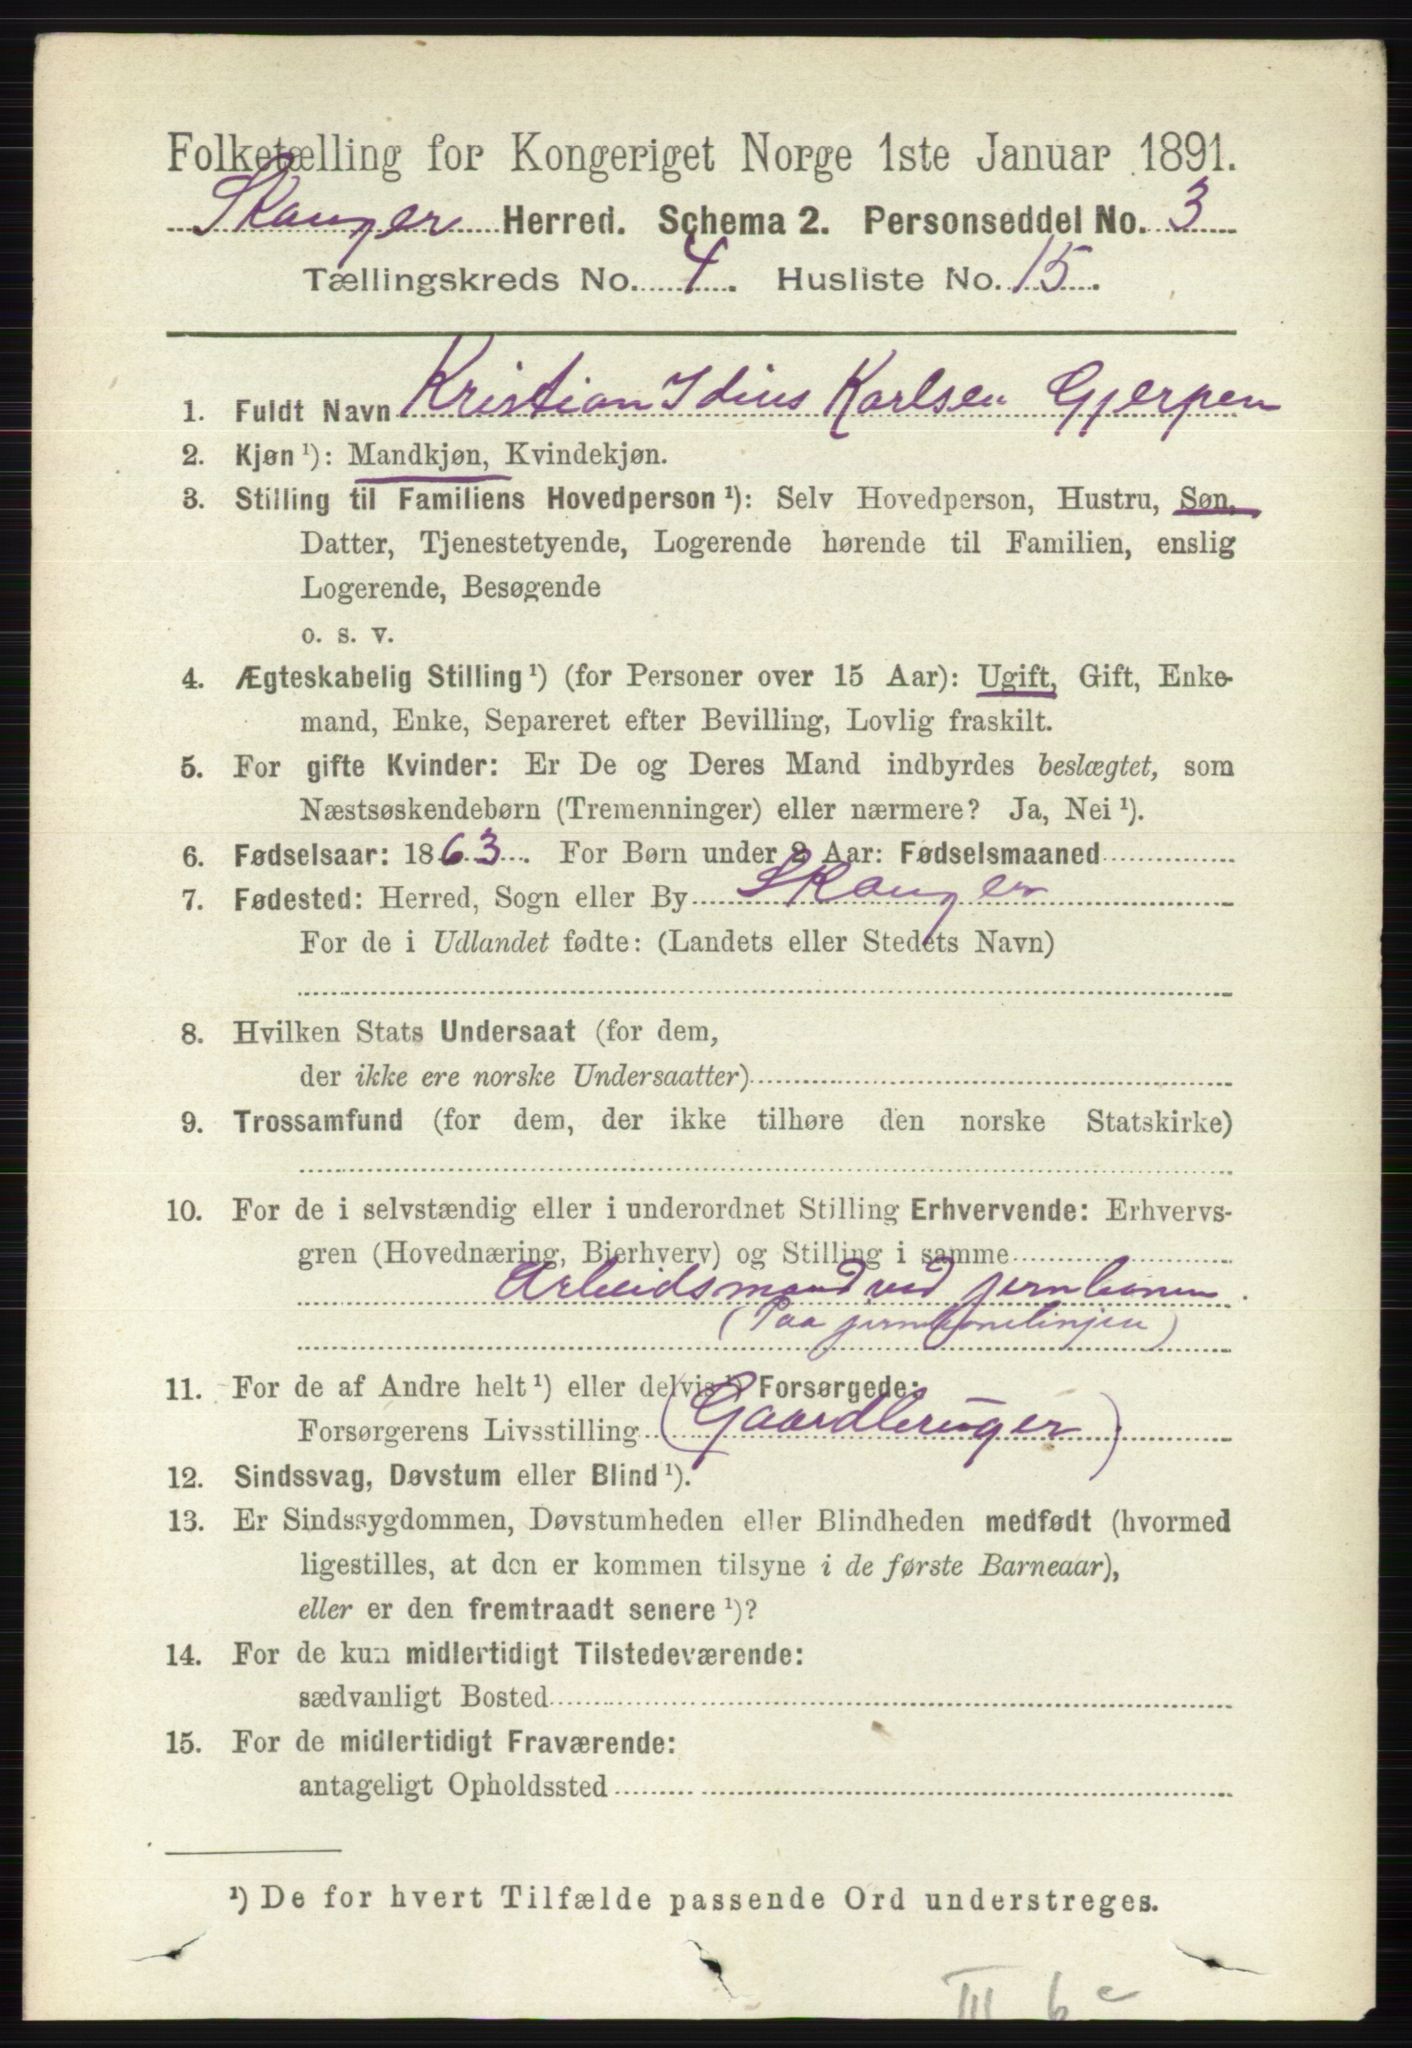 Folketælling for Kongeriget Norge 1ste Januar 1891.
Skauger Herred. Schema 2. Personseddel No. 3
Tællingskreds No. 4. Husliste No. 15.
1. Fuldt Navn Kristian Idius Karlsen Gjerpen
2. Kjøn ¹): Mandkjøn, Kvindekjøn.
3. Stilling til Familiens Hovedperson ¹): Selv Hovedperson, Hustru, Søn,
Datter, Tjenestetyende, Logerende hørende til Familien, enslig
Logerende, Besøgende
o. s. v.
4. Ægteskabelig Stilling ¹) (for Personer over 15 Aar): Ugift, Gift, Enke-
mand, Enke, Separeret efter Bevilling, Lovlig fraskilt.
5. For gifte Kvinder: Er De og Deres Mand indbyrdes beslægtet, som
Næstsøskendebørn (Tremenninger) eller nærmere? Ja, Nei ¹).
6. Fødselsaar: 1863. For Børn under 2 Aar: Fødselsmaaned
7. Fødested: Herred, Sogn eller By Skauger
For de i Udlandet fødte: (Landets eller Stedets Navn)
8. Hvilken Stats Undersaat (for dem,
der ikke ere norske Undersaatter)
9. Trossamfund (for dem, der ikke tilhøre den norske Statskirke)
10. For de i selvstændig eller i underordnet Stilling Erhvervende: Erhvervs-
gren (Hovednæring, Bierhverv) og Stilling i samme
Arbeidsmand ved jernbanen.
(Paa jernbanelinjen)
11. For de af Andre helt ¹) eller delvis ¹) Forsørgede:
Forsørgerens Livsstilling (Gaardbruger)
12. Sindssvag, Døvstum eller Blind ¹).
13. Er Sindssygdommen, Døvstumheden eller Blindheden medfødt (hvormed
ligestilles, at den er kommen tilsyne i de første Barneaar),
eller er den fremtraadt senere ¹)?
14. For de kun midlertidigt Tilstedeværende:
sædvanligt Bosted
15. For de midlertidigt Fraværende:
antageligt Opholdssted
¹) De for hvert Tilfælde passende Ord understreges.
III 6 c